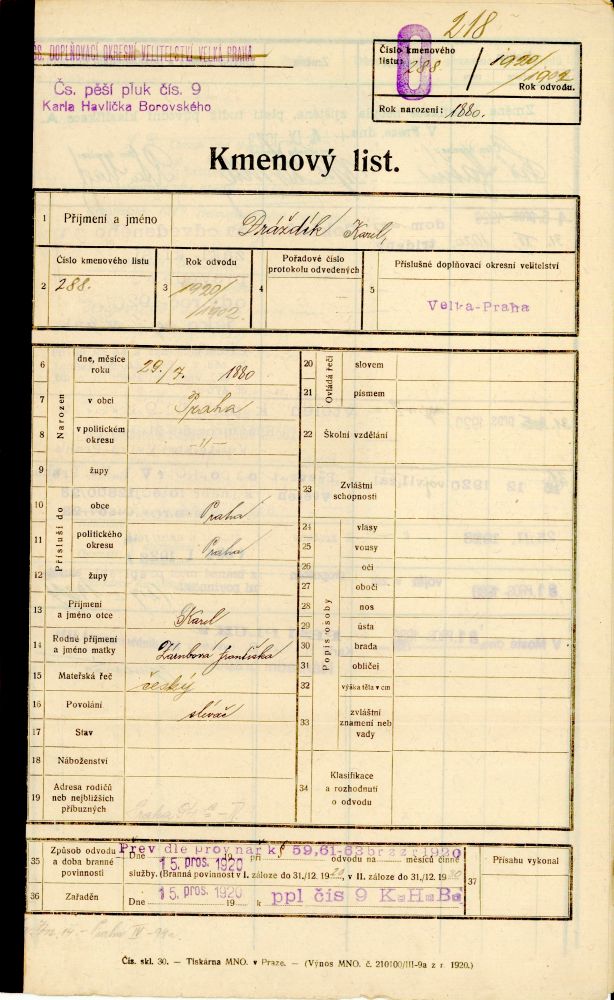 218
ČS. DOPLŇOVACÍ OKRESNÍ VELITELSTVÍ VELKÁ PRAHA.
Čs. pěší pluk čís. 9
Karla Havlíčka Borovského
Číslo kmenového
listu: 288.
1920/1902
Rok odvodu.
Rok narození: 1880.
0
Kmenový list.
1 Příjmení a jméno Dráždík Karel,
Číslo kmenového listu
2 288.
Rok odvodu
3 1920/1902
Pořadové číslo
protokolu odvedených
4
Příslušné doplňovací okresní velitelství
5 Velká-Praha
Narozen
6 dne, měsíce
roku 29./7. 1880
7 v obci Praha
8 v politickém
okresu -"-
Přísluší do
9 župy
10 obce Praha
11 politického
okresu Praha
12 župy
13 Příjmení
a jméno otce Karel
14 Rodné příjmení
a jméno matky Františka
15 Mateřská řeč český
16 Povolání slévač
17 Stav
18 Náboženství
19 Adresa rodičů
neb nejbližších
příbuzných
Ovládá řeči
20 slovem
21 písmem
22 Školní vzdělání
23 Zvláštní
schopnosti
Popis osoby
24 vlasy
25 vousy
26 oči
27 obočí
28 nos
29 ústa
30 brada
31 obličej
32 výška těla v cm
33 zvláštní
znamení neb
vady
34 Klasifikace
a rozhodnutí
o odvodu
35 Způsob odvodu
a doba branné
povinnosti
Přev dle prov nař k § 59,61-63 br z z r 1920
Dne 15. pros. 1920 19 při odvodu na měsíců činné
služby. (Branná povinnost v I. záloze do 31./12. 1920, v II. záloze do 31./12. 1930
36 Zařaděn
Dne 15. pros. 1920 19 k ppl čís 9 K.H.B.
37 Přísahu vykonal
Čís. skl. 30. — Tiskárna MNO. v Praze. — (Výnos MNO. č. 210100/III-9a z r. 1920.)